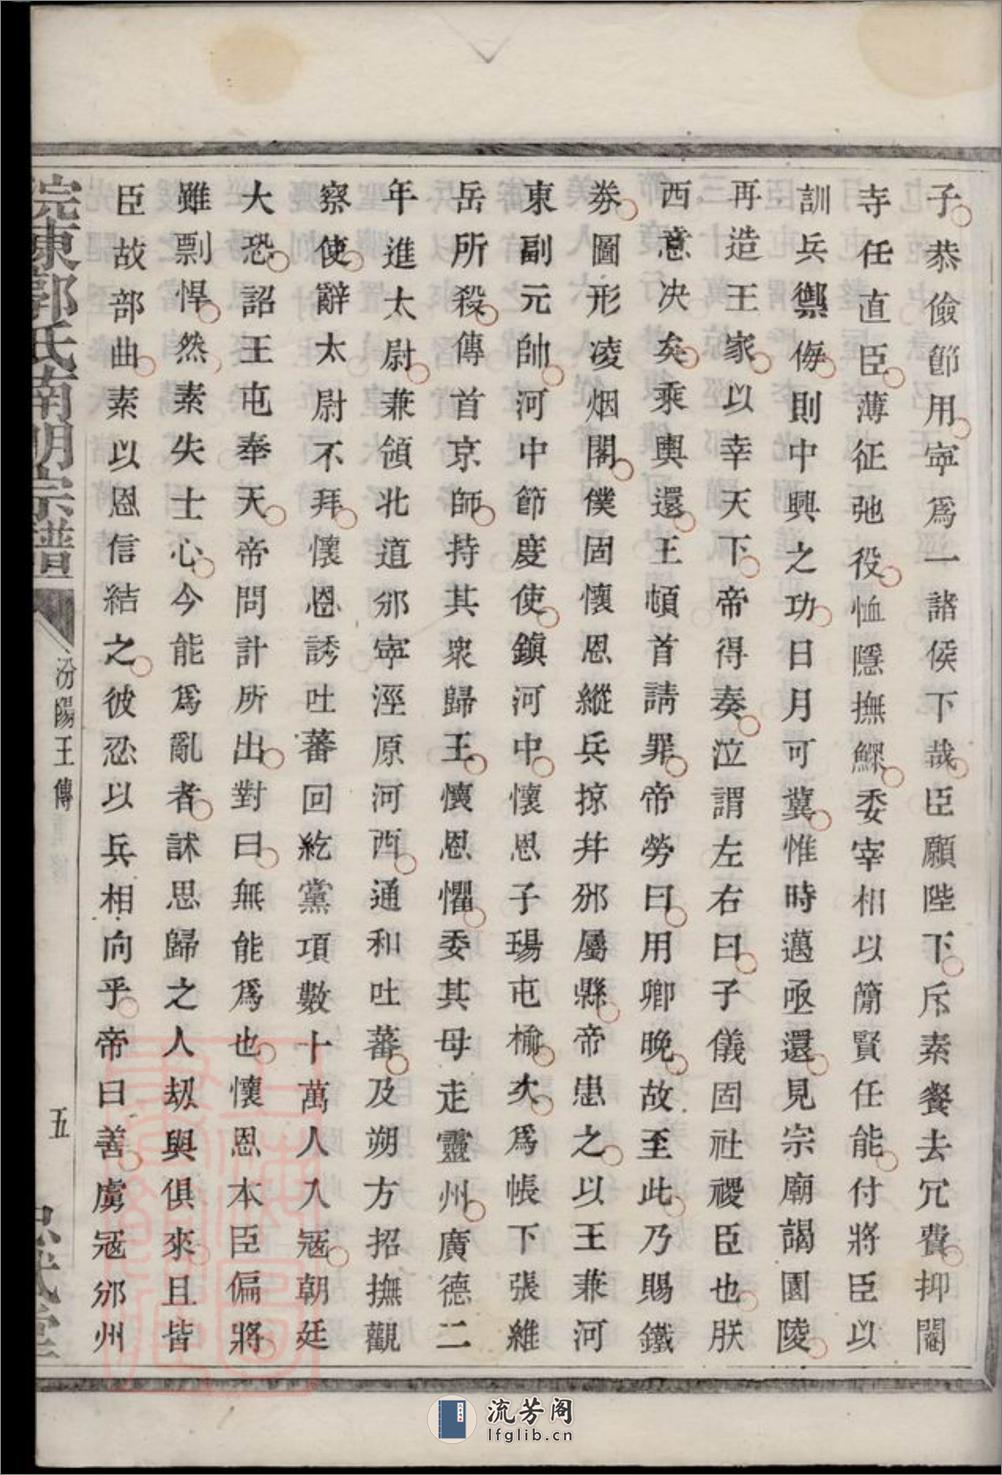 子恭儉節用寧爲一諸侯下哉臣願陛下斥素餐去冗費抑閹
寺任直臣薄征弛役恤隱撫鰥委宰相以簡賢任能付將臣以
訓兵禦侮則中興之功日月可冀惟時邁亟還見宗廟謁園陵
再造王家以幸天下帝得奏泣謂左右曰子儀固社稷臣也朕
西意决矣乘輿還王頓首請罪帝勞曰用卿晚故至此乃賜鐵
券圖形凌烟閣僕固懷恩縱兵掠并邠屬縣帝患之以王兼河
東副元帥河中節度使鎮河中懷恩子瑒屯榆次爲帳下張維
岳所殺傳首京師持其衆歸王懷恩懼委其母走靈州廣德二
年進太尉兼領北道邠寧涇原河西通和吐蕃及朔方招撫觀
察使辭太尉不拜懷恩誘吐蕃回紇黨項數十萬人入冦朝廷
大恐詔王屯奉天帝問計所出對曰無能爲也懷恩本臣偏將
雖剽悍然素失士心今能爲亂者訹思歸之人刼與俱來且皆
臣故部曲素以恩信結之彼忍以兵相向乎帝曰善虜冦邠州
皖東郭氏南明宗譜
汾陽王傳
五
流芳阁
lfglib.cn